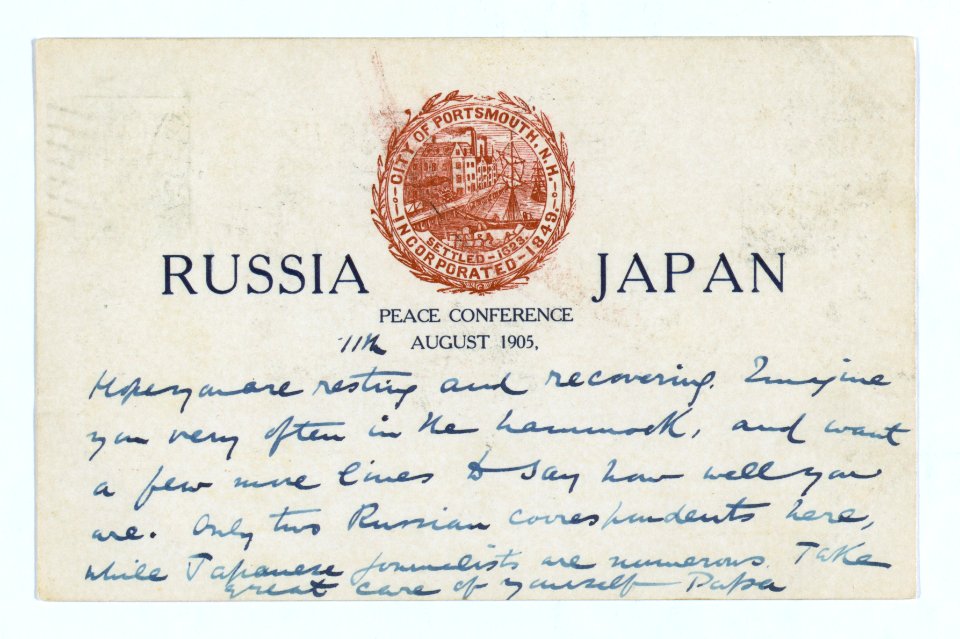 CITY OF PORTSMOUTH, N.H.
SETTLED-1623.
INCORPORATED-1849.
RUSSIA JAPAN
PEACE CONFERENCE
11th AUGUST 1905,
Hope you are resting and recovering. Imagine
you very often in the hammock, and want
a few more lines to say how well you
are. Only two Russian correspondents here,
while Japanese journalists are numerous. Take
great care of yourself Papa